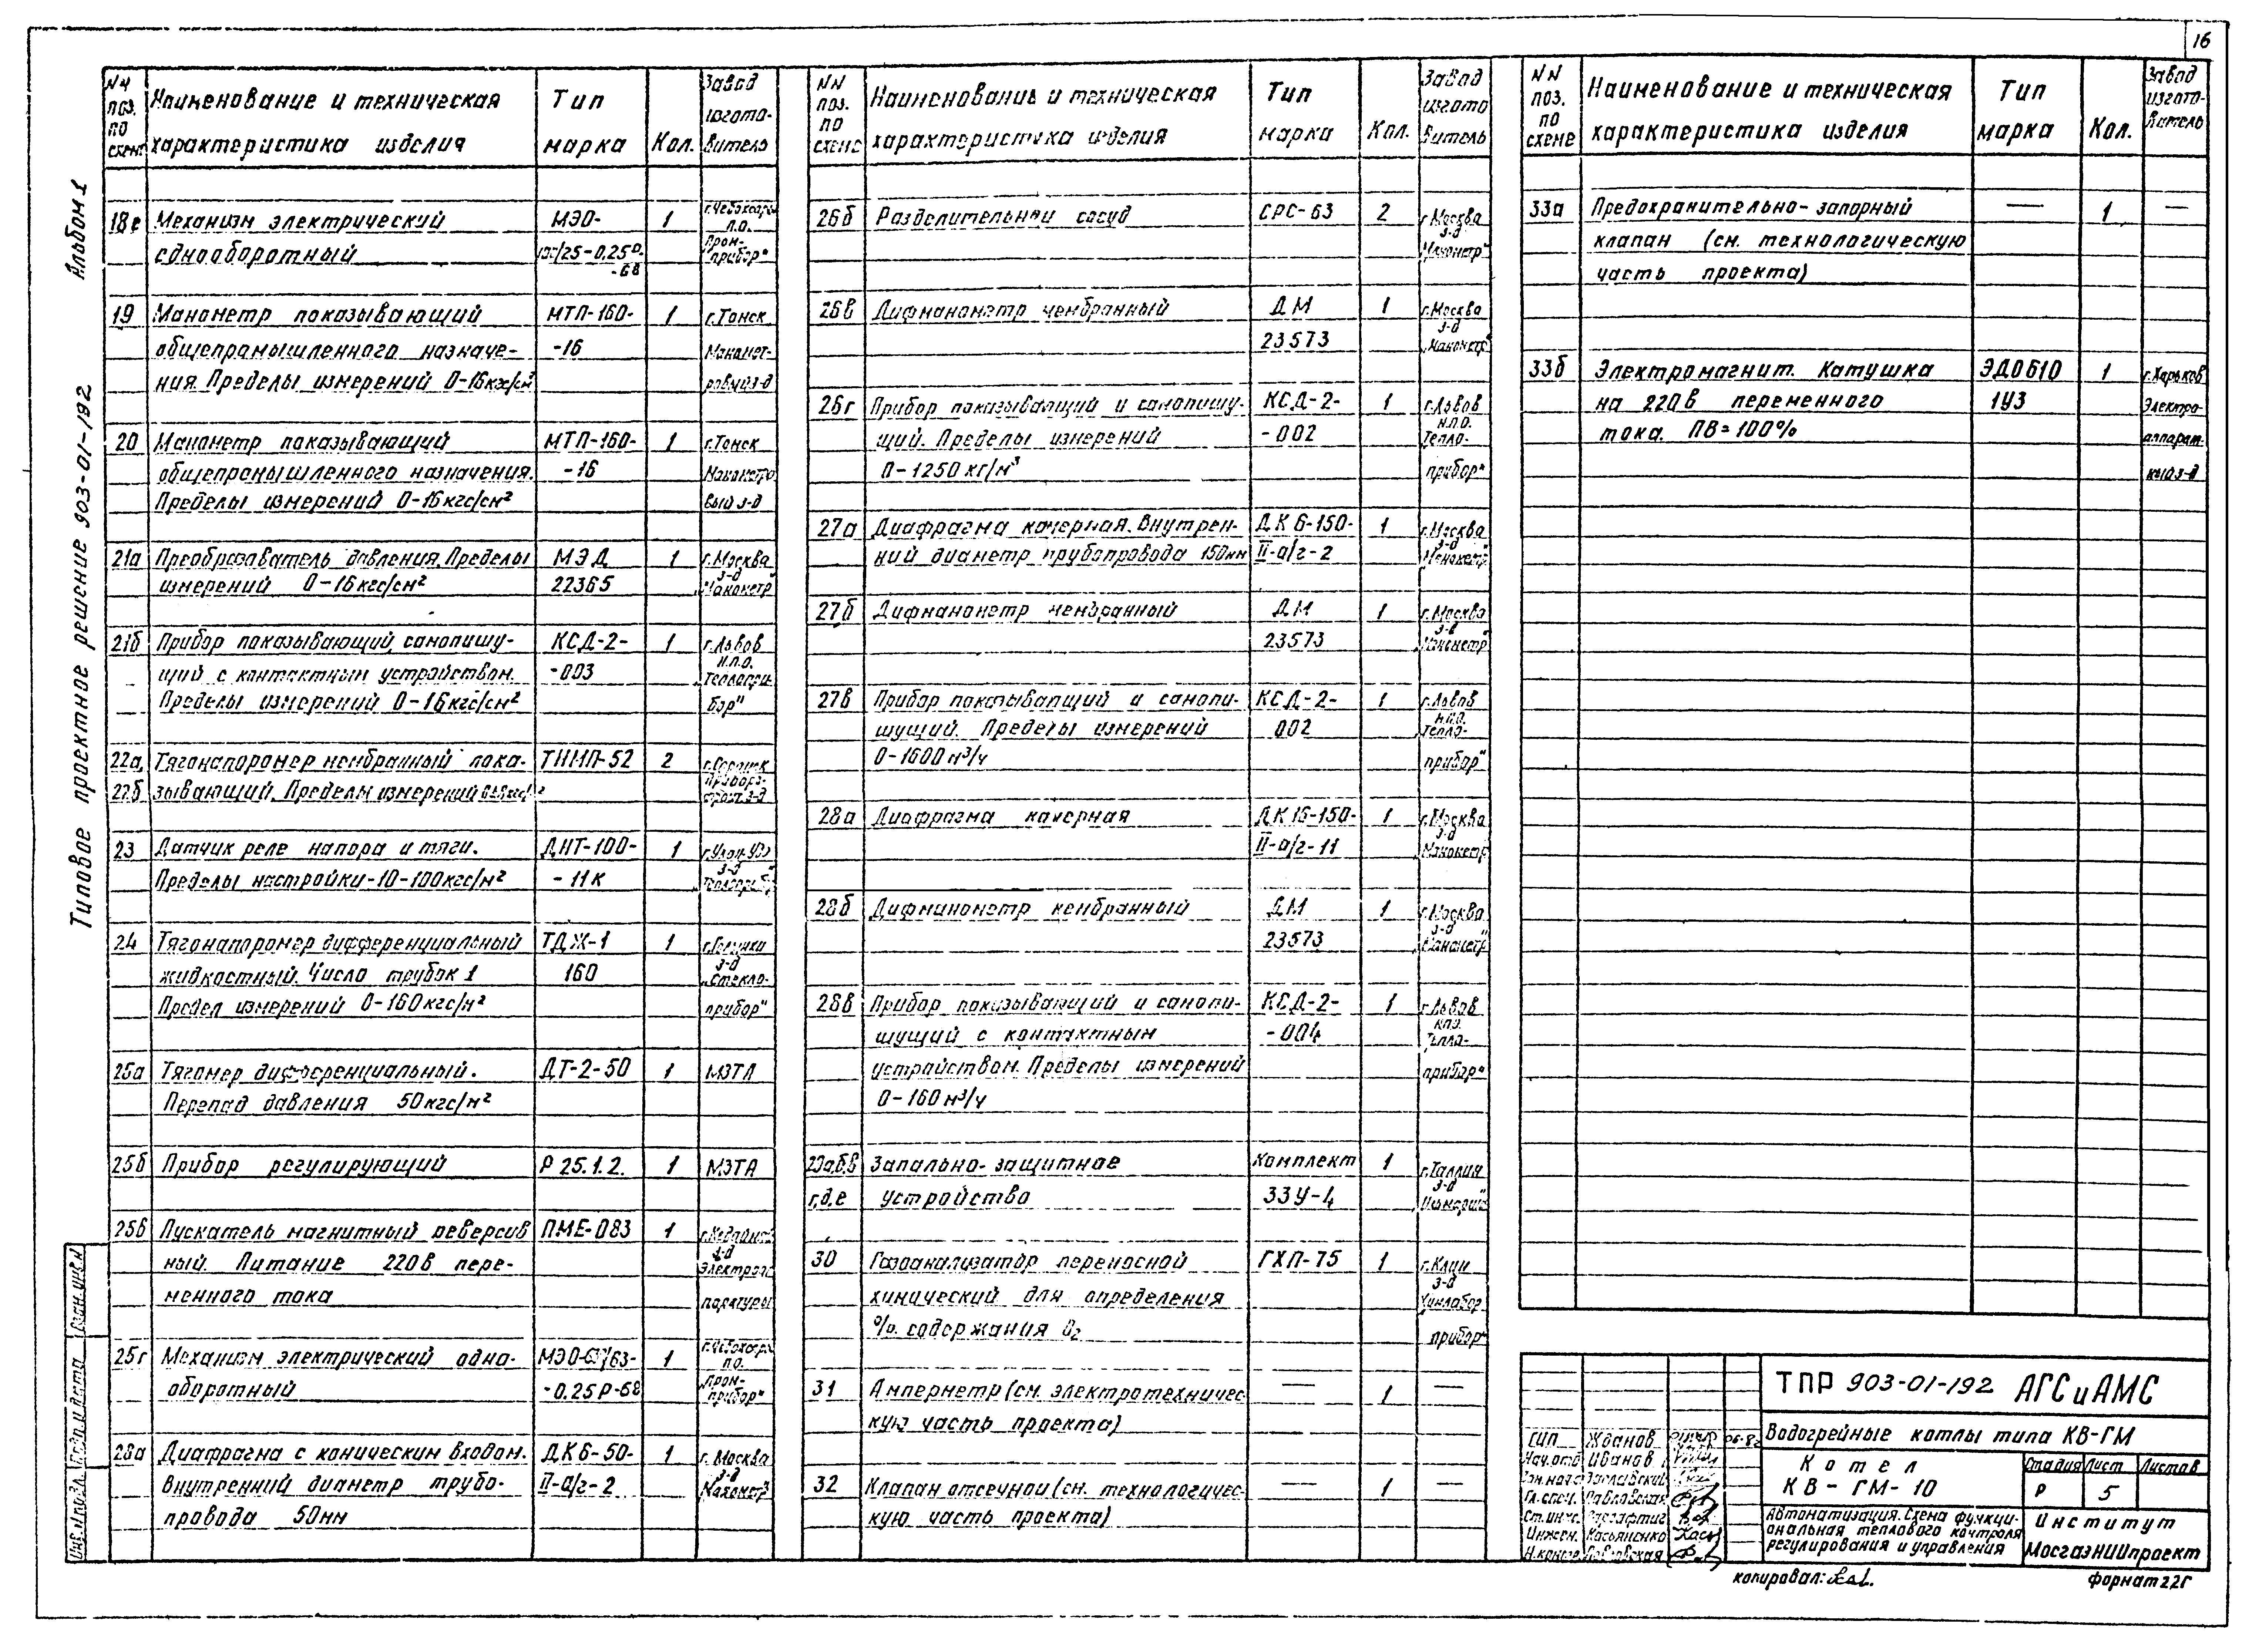 16
Альбом 1
Типовое проектное решение 903-01-192
NN поз. по схеме
Наименование и техническая характеристика изделия
Тип марка
Кол.
Завод изготовитель
18е Механизм электрический МЭО- 1 г.Чебоксары
однооборотный /25-0,25Р- П.О. "Промприбор"
-68
19 Манометр показывающий МТП-160- 1 г.Томск
общепромышленного назначе- -16 Маномет-
ния. Пределы измерений 0-16кгс/см² ровый з-д
20 Манометр показывающий МТП-160- 1 г.Томск
общепромышленного назначения. -16 Манометро
Пределы измерений 0-16кгс/см² вый з-д
21а Преобразователь давления. Пределы МЭД 1 г.Москва
измерений 0-16кгс/см² 22365 з-д "Манометр"
21б Прибор показывающий, самопишу- КСД-2- 1 г.Львов
щий с контактным устройством. -003 Н.П.О. "Теплопри-
Пределы измерений 0-16кгс/см² бор"
22а, Тягонапоромер мембранный пока- ТНМП-52 2
22б зывающий. Пределы измерений
23 Датчик реле напора и тяги. ДНТ-100- 1 г.Улан-Удэ
Пределы настройки-10-100кгс/м² -11К з-д "Теплоприбор"
24 Тягонапоромер дифференциальный ТДЖ-1 1
жидкостный. Число трубок 1 160 з-д „Стекло-
Предел измерений 0-160кгс/м² прибор"
25а Тягомер дифференциальный. ДТ-2-50 1 МЗТА
Перепад давления 50кгс/м²
25б Прибор регулирующий Р 25.1.2. 1 МЗТА
25в Пускатель магнитный реверсив ПМЕ-083 1
ный. Питание 220в пере- з-д Электроап
менного тока паратуры
25г Механизм электрический одно- МЭО- /63- 1 г.Чебоксары
оборотный -0.25Р-68 П.О. „Промприбор"
26а Диафрагма с коническим входом. ДК6-50- 1 г.Москва
Внутренний диаметр трубо- II-а/г-2 з-д "Манометр"
провода 50мм
NN поз. по схеме
Наименование и техническая характеристика изделия
Тип марка
Кол.
Завод изготовитель
26б Разделительный сосуд СРС-63 2 г.Москва
з-д "Манометр"
26в Дифманометр мембранный ДМ 1 г.Москва
23573 з-д „Манометр"
26г Прибор показывающий и самопишу- КСД-2- 1 г.Львов
щий. Пределы измерений -002 Н.П.О. "Тепло-
0-1250кг/м³ прибор"
27а Диафрагма камерная. Внутрен- ДК6-150- 1 г.Москва
ний диаметр трубопровода 150мм II-а/г-2 з-д "Манометр"
27б Дифманометр мембранный ДМ 1 г.Москва
23573 з-д "Манометр"
27в Прибор показывающий и самопи- КСД-2- 1 г.Львов
шущий. Пределы измерений 002 Н.П.О. "Тепло-
0-1600м³/ч прибор"
28а Диафрагма камерная ДК16-150- 1 г.Москва
II-а/г-11 з-д "Манометр"
28б Дифманометр мембранный ДМ 1 г.Москва
23573 з-д "Манометр"
28в Прибор показывающий и самопи- КСД-2- 1 г.Львов
шущий с контактным -004 НПО "Тепло-
устройством. Пределы измерений прибор"
0-160м³/ч
29а,б,в Запально-защитное Комплект 1 г.Таллин
г,д,е устройство ЗЗУ-4 з-д
30 Газоанализатор переносной ГХП-75 1 г.Клин
химический для определения з-д "Химлабор
% содержания O₂ прибор"
31 Амперметр (см. электротехничес- — 1 —
кую часть проекта)
32 Клапан отсечной (см. технологичес- — 1 —
кую часть проекта)
NN поз. по схеме
Наименование и техническая характеристика изделия
Тип марка
Кол.
Завод изготовитель
33а Предохранительно-запорный — 1 —
клапан (см. технологическую
часть проекта)
33б Электромагнит. Катушка ЭД0610 1 г.Харьков
на 220в переменного 1У3 Электро-
тока. ПВ=100% аппарат-
ный з-д
ТПР 903-01-192 АГСиАМС
Водогрейные котлы типа КВ-ГМ
Котел
КВ-ГМ-10
Стадия Лист Листов
Р 5
Автоматизация. Схема функци-
ональная теплового контроля
регулирования и управления
Институт
МосгазНИИпроект
ГИП Жданов
Нач.отд Иванов
Зам.нач.о Заславский
Гл.спец. Павловская
Ст.инж.
Инжен. Касьяненко
Н.контр. Павловская
Взам.инв.N
Подп. и дата
Инв.N подл.
копировал:
формат 22Г